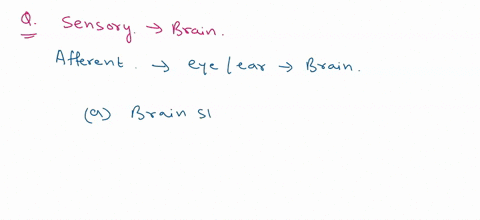 Q. Sensory. → Brain.
Afferent. → eye/ear → Brain.
(a) Brain st